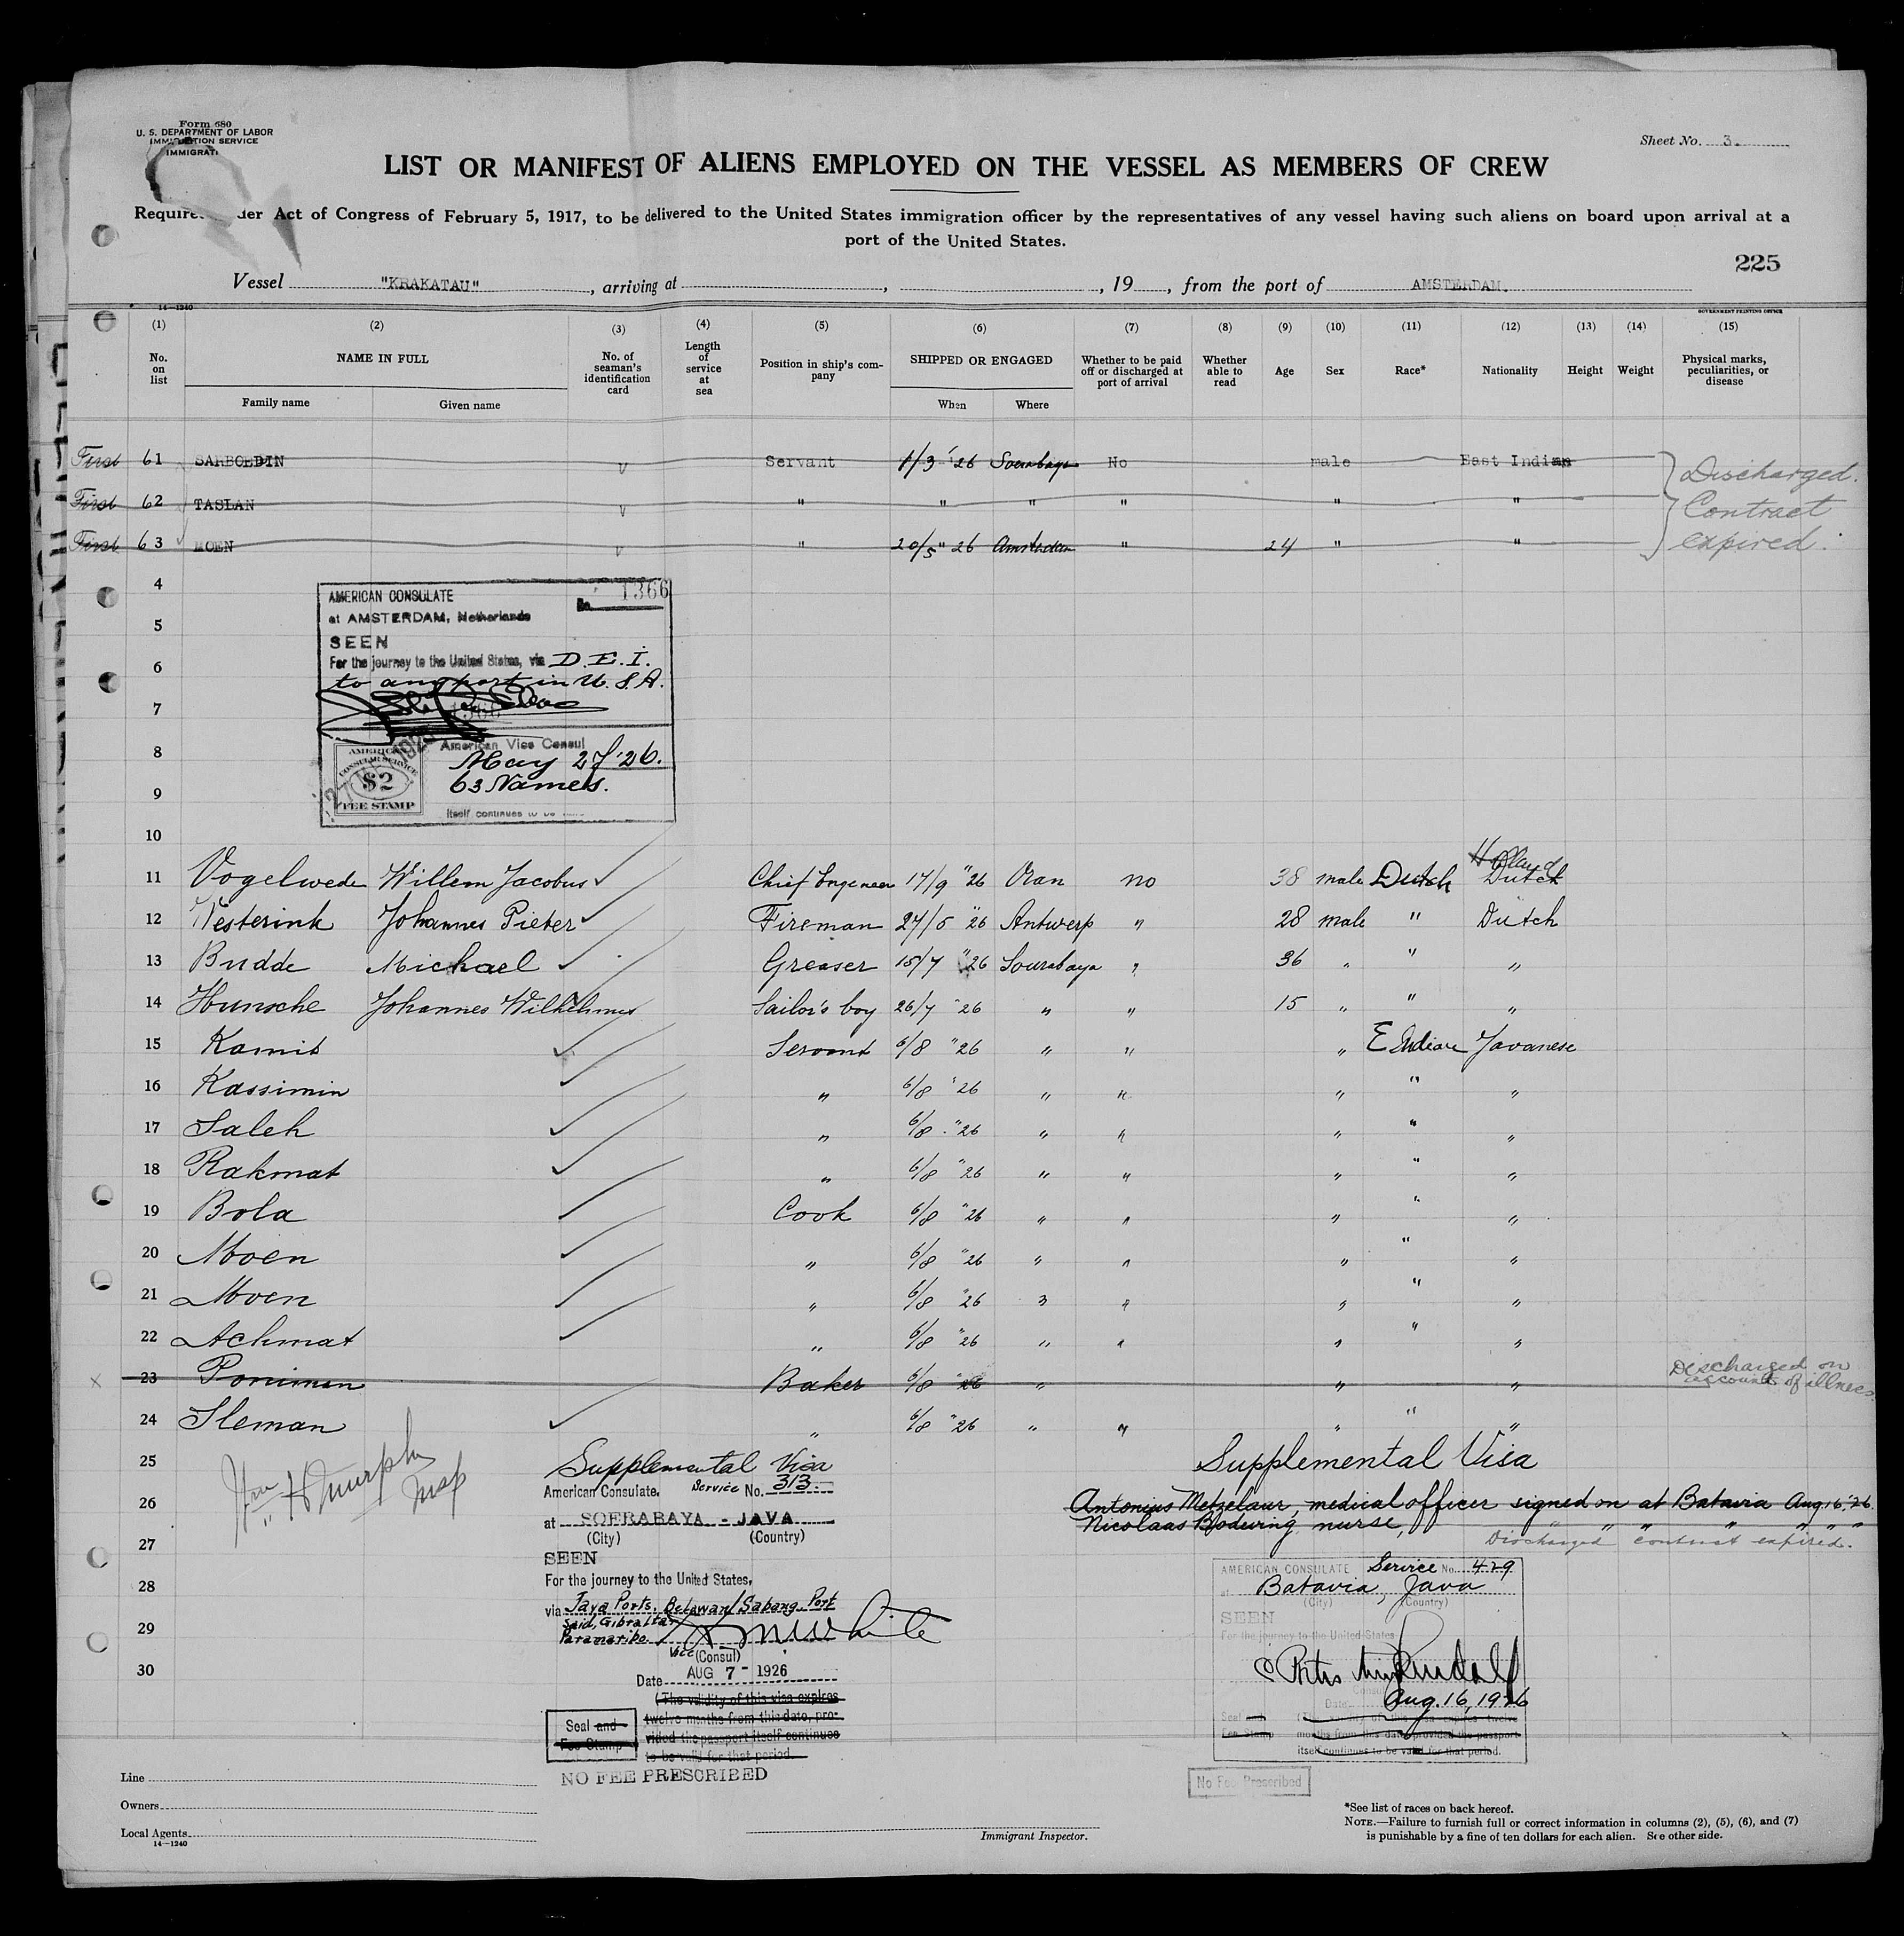 Form 680
U. S. DEPARTMENT OF LABOR
IMMIGRATION SERVICE
IMMIGRATI
Sheet No. 3.
LIST OR MANIFEST OF ALIENS EMPLOYED ON THE VESSEL AS MEMBERS OF CREW
Require der Act of Congress of February 5, 1917, to be delivered to the United States immigration officer by the representatives of any vessel having such aliens on board upon arrival at a
port of the United States.
225
Vessel "KRAKATAU" , arriving at , , 19 , from the port of AMSTERDAM.
14—1240 GOVERNMENT PRINTING OFFICE
(1) (2) (3) (4) (5) (6) (7) (8) (9) (10) (11) (12) (13) (14) (15)
No. on list NAME IN FULL No. of seaman's identification card Length of service at sea Position in ship's company SHIPPED OR ENGAGED Whether to be paid off or discharged at port of arrival Whether able to read Age Sex Race* Nationality Height Weight Physical marks, peculiarities, or disease
Family name Given name When Where
First 61 SARBOEDIN v Servant 1/3 '26 Sourabaya No male East Indian Discharged.
First 62 TASLAN v " " " " " " Contract
First 63 MOEN v " 20/5 " 26 Amsterdam " 24 " " expired.
4
AMERICAN CONSULATE No. 1366
at AMSTERDAM, Netherlands
5
SEEN
6
For the journey to the United States, via D.E.I.
to any port in U.S.A.
7
1366
8
American Vice Consul
AMERICAN CONSULAR SERVICE $2 FEE STAMP
May 27 '26.
63 Names.
9
itself continues to be
10
Holland
11 Vogelwede Willem Jacobus Chief Engeneer 17/9 "26 Oran no 38 male Dutch Dutch
12 Westerink Johannes Pieter Fireman 27/5 "26 Antwerp " 28 male " Dutch
13 Budde Michael Greaser 15/7 "26 Sourabaya " 36 " " "
14 Hunsche Johannes Wilhelmus Sailor's boy 26/7 "26 " " 15 " " "
15 Kamit Servant 6/8 "26 " " " E Indian Javanese
16 Kassimin " 6/8 "26 " " " " "
17 Saleh " 6/8 "26 " " " " "
18 Rakmat " 6/8 "26 " " " " "
19 Bola Cook 6/8 "26 " " " " "
20 Moen " 6/8 "26 " " " " "
21 Moen " 6/8 "26 " " " " "
22 Achmat " 6/8 "26 " " " " "
x 23 Poniman Baker 6/8 "26 " " " Discharged on
account of illness
24 Sleman " 6/8 "26 " " " " "
25
Wm H Murphy
Insp
Supplemental Visa
American Consulate. Service No. 313.
26
at SOERABAYA - JAVA
(City) (Country)
27
SEEN
For the journey to the United States,
28
via Java Ports, Belawan/Sabang, Port
Said, Gibraltar
29
Paramaribo
White
Vice (Consul)
30
Date AUG 7 - 1926
(The validity of this visa expires
twelve months from this date, pro-
vided the passport itself continues
to be valid for that period.
Seal and
Fee Stamp
NO FEE PRESCRIBED
Supplemental Visa
Antonius Metzelaur, medical officer signed on at Batavia Aug. 16, '26.
Nicolaas Bodewing, nurse, " " " " " " "
Discharged contract expired.
AMERICAN CONSULATE Service No. 429
at Batavia, Java
(City) (Country)
SEEN
For the journey to the United States
Consul
Date Aug. 16, 1926
Seal and
Fee Stamp
(The validity of this visa expires twelve
months from this date provided the passport
itself continues to be valid for that period.
No Fee Prescribed
Line
Owners
Local Agents
14—1240
Immigrant Inspector.
*See list of races on back hereof.
NOTE.—Failure to furnish full or correct information in columns (2), (5), (6), and (7)
is punishable by a fine of ten dollars for each alien. See other side.